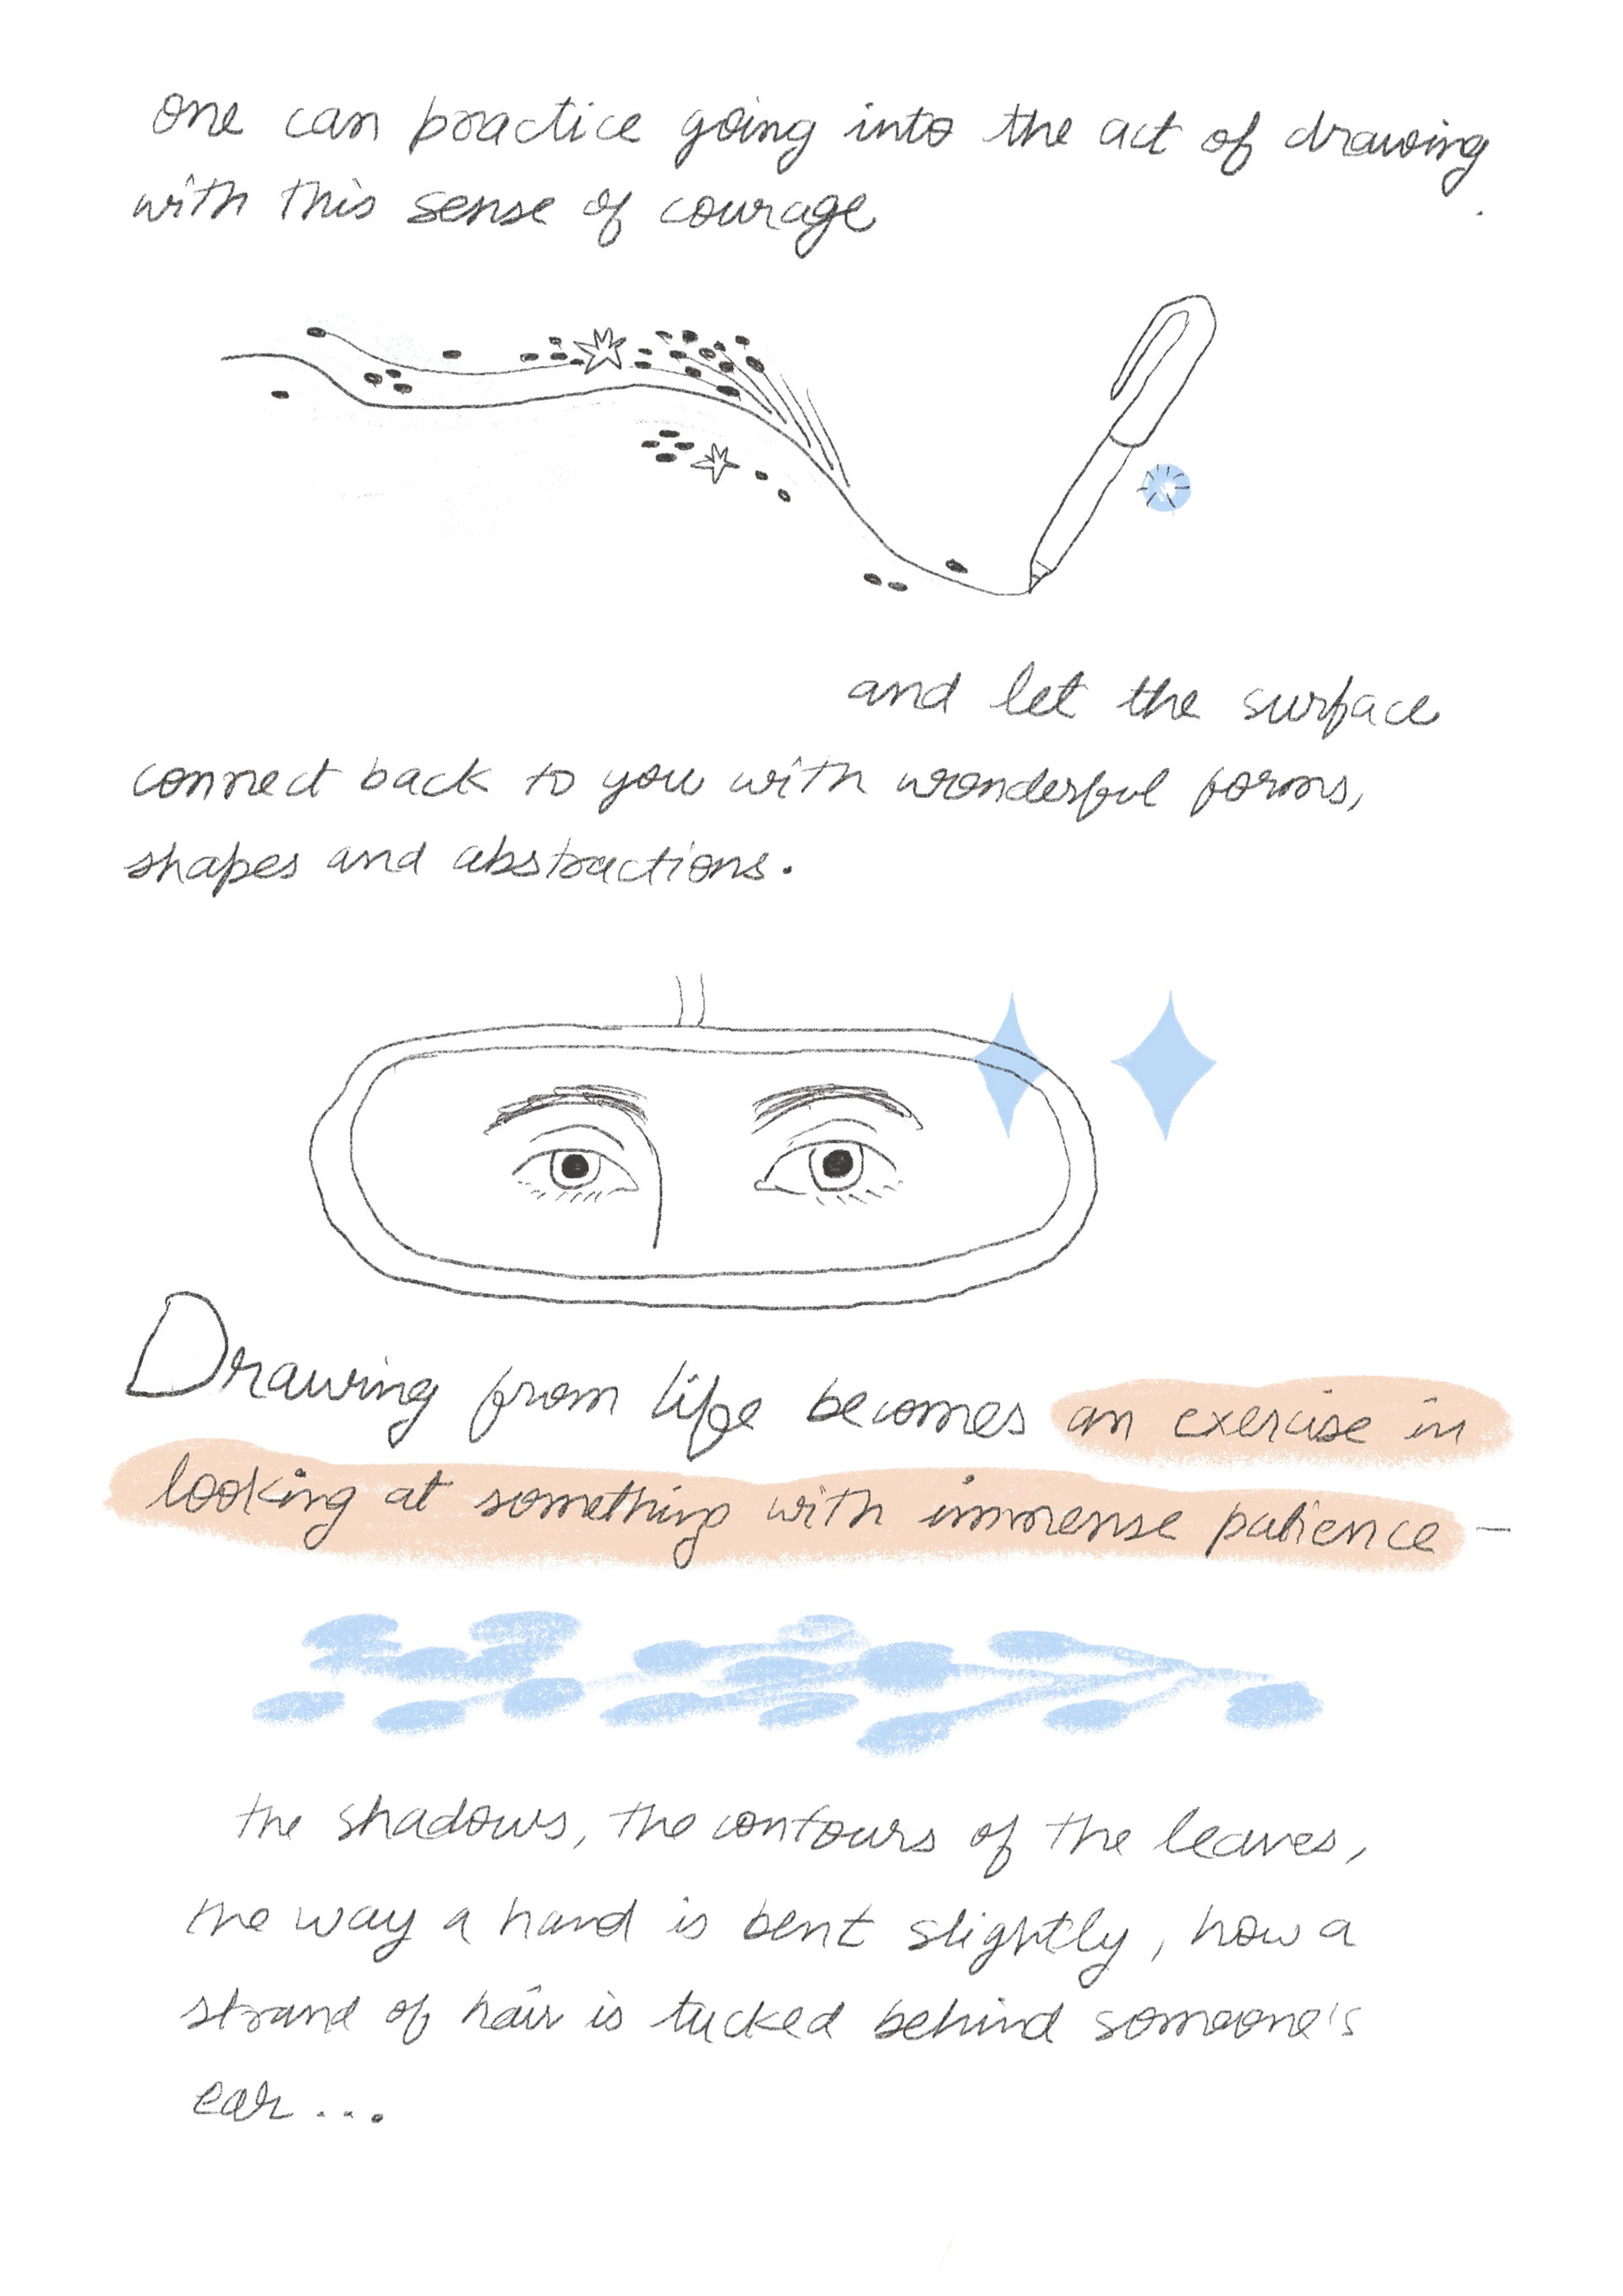 one can practice going into the act of drawing
with this sense of courage
and let the surface
connect back to you with wonderful forms,
shapes and abstractions.
Drawing from life becomes an exercise in
looking at something with immense patience –
the shadows, the contours of the leaves,
the way a hand is bent slightly, how a
strand of hair is tucked behind someone's
ear...